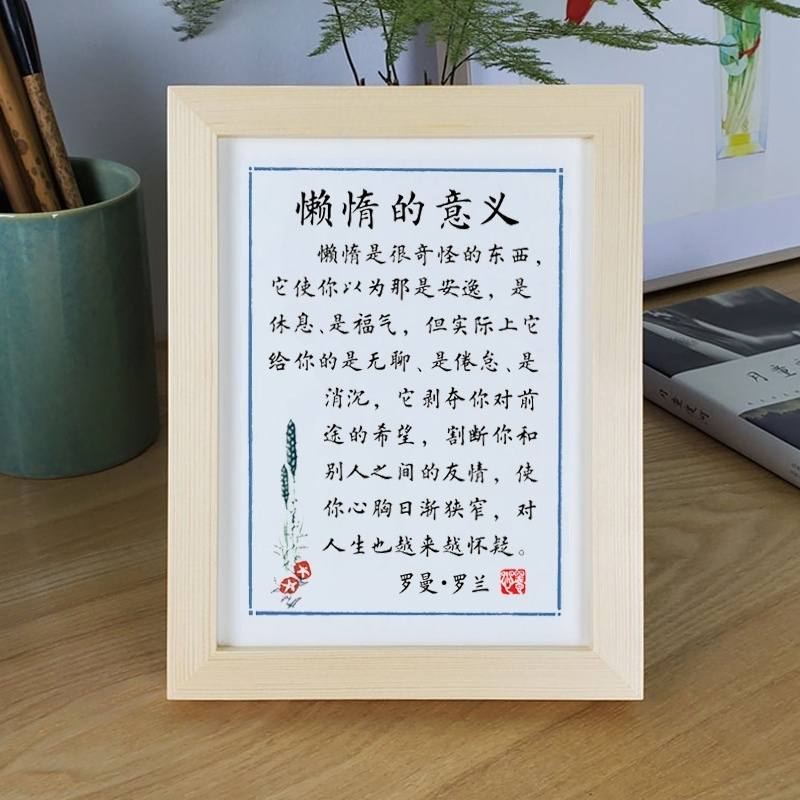 懒惰的意义
懒惰是很奇怪的东西，
它使你以为那是安逸，是
休息、是福气，但实际上它
给你的是无聊、是倦怠、是
消沉，它剥夺你对前
途的希望，割断你和
别人之间的友情，使
你心胸日渐狭窄，对
人生也越来越怀疑。
罗曼·罗兰